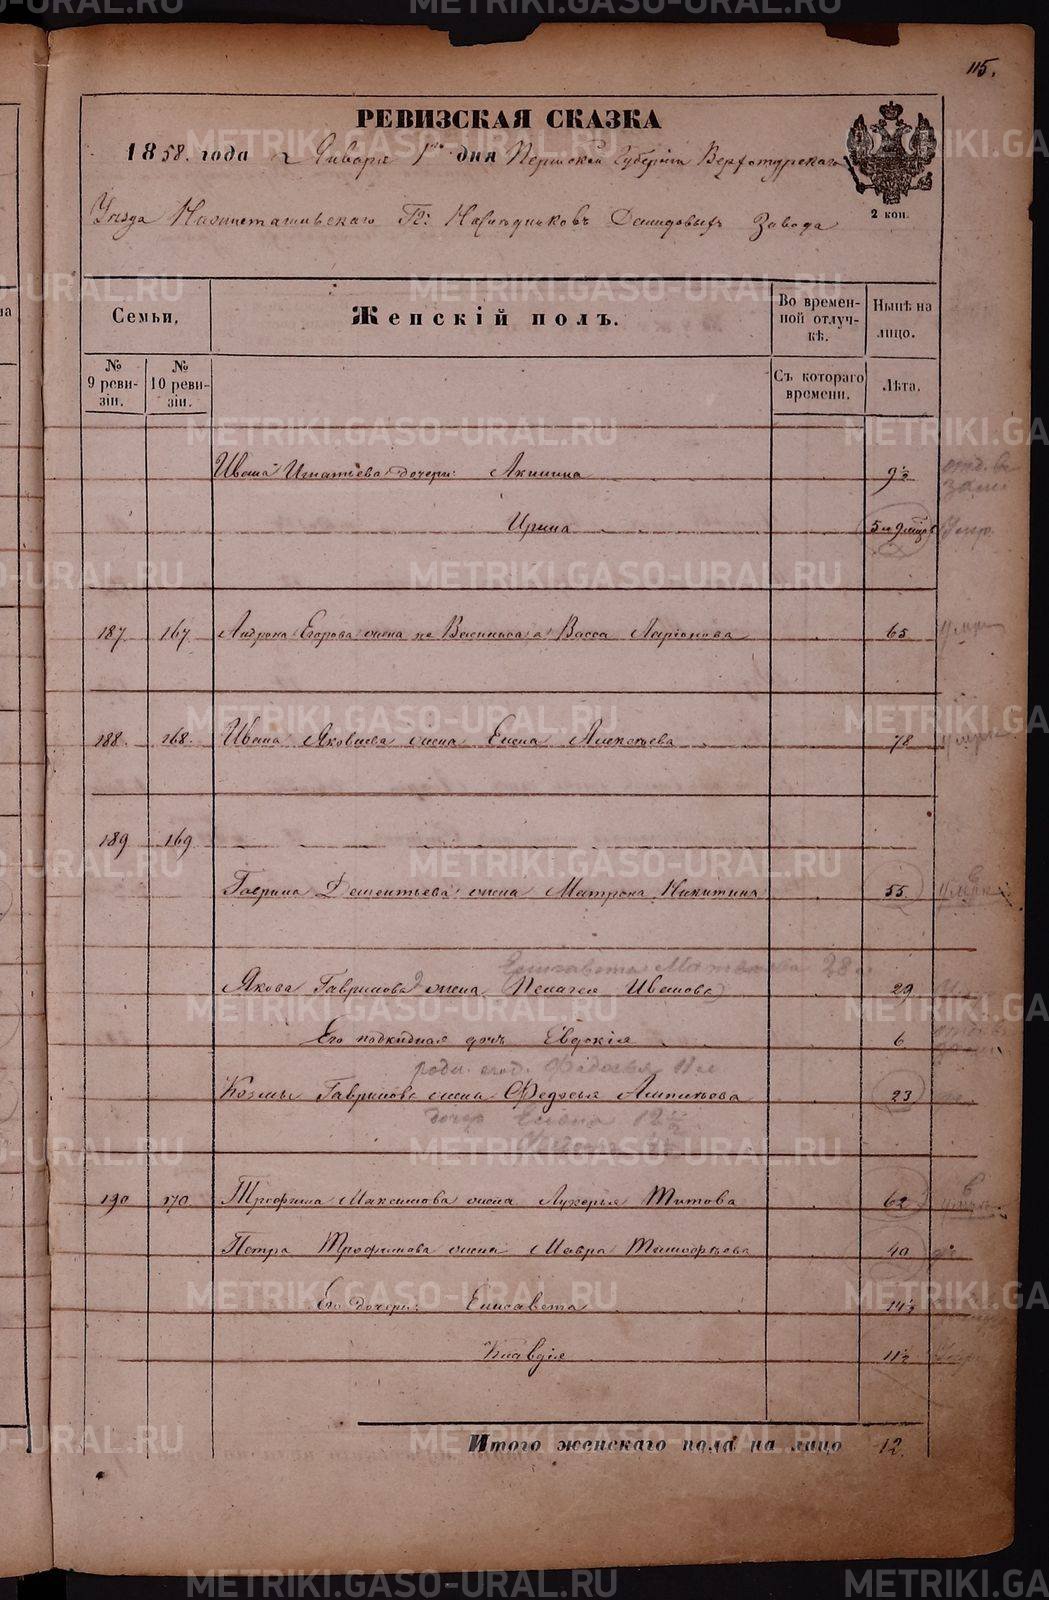 115.
РЕВИЗСКАЯ СКАЗКА
1858. года Января 1го дня Пермской Губернiи Верхотурскаго
Уѣзда Нижнетагильскаго Гг: Наслѣдниковъ Демидовыхъ Завода
2 коп.
Семьи.
Женскій полъ.
Во временной отлучкѣ.
Нынѣ на лицо.
№ 9 ревизіи.
№ 10 ревизіи.
Съ котораго времени.
Лѣта.
Ивана Игнатьева дочери: Акилина 9½
Ирина 5 и 9 мѣцов
187. 167. Андрона Егорова жена Васса Ларіонова 65
188. 168. Ивана Яковлева жена Елена Алексѣева 78
189 169
Гаврила Дементьева жена Матрона Никитина 55
Елизавета 28
Якова Гаврилова жена Пелагея Иванова 29
Его подкидная дочь Евдокія 6
Федосья 11
Козмы Гаврилова жена Федосья 23
дочь Елена 12½
190 170. Трофима Максимова жена Лукерья Титова 62
Петра Трофимова жена Мавра Тимофѣева 40
Его дочери: Елисавета 14½
Клавдія 11½
Итого женскаго пола на лицо 12.
METRIKI.GASO-URAL.RU